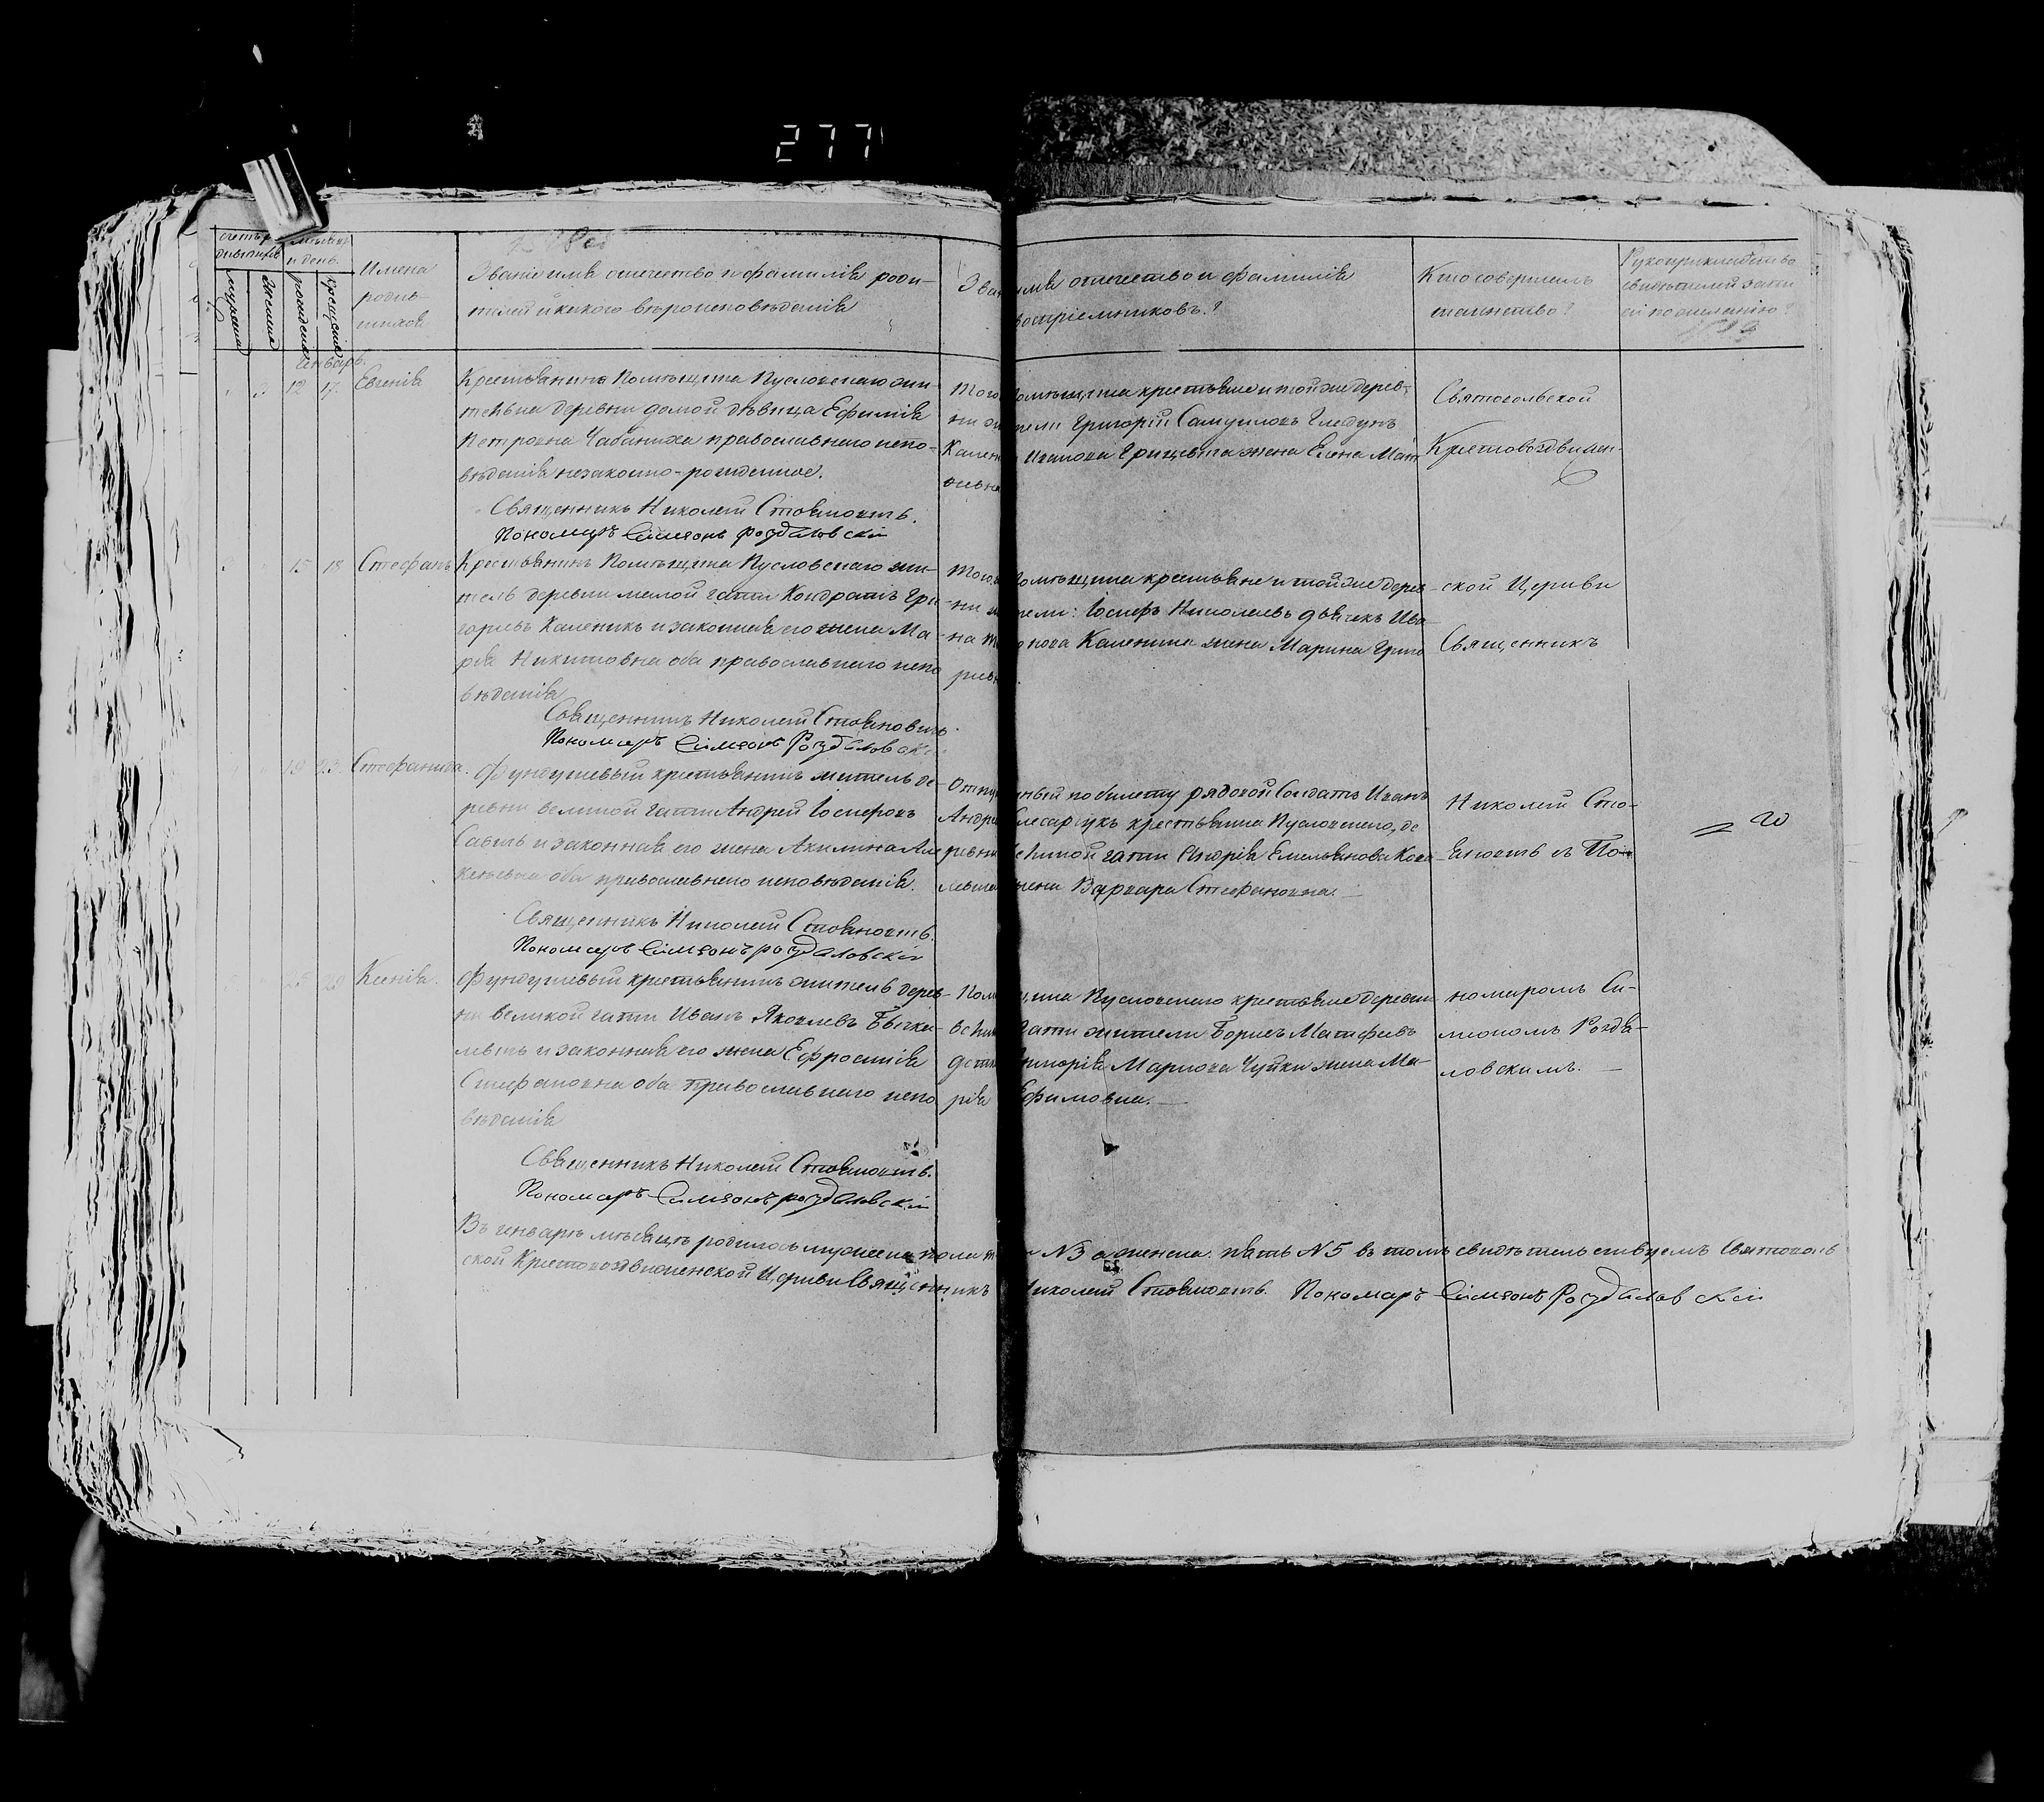 277
счетъ ро- мѣсяцъ
дившихся и день.
мужеска
женска
рожденія
крещенія
Имена
родив-
шихся
Званіе имя отечество и фамилія роди-
телей и какого вѣроисповѣданія
Зва имя отечество и фамилія
воспріемниковъ?
Кто совершалъ
таинство?
Рукоприкладство
свидѣтелей записи
по желанію?
Январь.
3 12 17. Евгенія
Крестьянинъ Помѣщика Пусловскаго жи-
деревни дѣвица Ефимія
Петровна Чабаниха православнаго испо-
вѣданія незаконно-рожденное.
Священникъ Николай Стояновичъ.
Пономаръ Симеонъ Роздаловскій
Того помѣщика крестьяне и той же дерев-
ни жители Григорій Самуиловъ Гледунъ
Иванова Грицевича жена Елена Мат
Святовольской
Крестовоздвижен-
15 18 Стефанъ
Крестьянинъ Помѣщика Пусловскаго жи-
тель деревни малой гати Кондратъ Гри-
горьевъ Каленикъ и законная его жена Ма-
рія Никитовна оба православнаго испо
вѣданія
Священникъ Николай Стояновичъ.
Пономаръ Симеонъ Роздаловскій
Того помѣщика крестьяне и той же дерев-
ни жители: Іосифъ Николаевъ дьячекъ Ива-
на Каленика жена Марина Григо
рьевна
ской Церкви
Священникъ
19 23. Стефанида.
Фундушевый крестьянинъ житель де-
ревни великой гати Андрей Іосифовъ
Савичъ и законная его жена Акилина Але
ксѣевна оба православнаго исповѣданія.
Священникъ Николай Стояновичъ.
Пономаръ Симеонъ Роздаловскій
по билету рядовой Солдатъ Иванъ
Андре Слесарчукъ крестьянина Пусловскаго, де
ревни великой гати Андрія Емельянова
жена Варвара Стефановна.
Николай Сто-
яновичъ съ По-
25 29 Ксенія.
Фундушевый крестьянинъ житель дерев-
ни великой гати Иванъ Яковлевъ Бычке-
вичъ и законная его жена Ефросинія
Стефановна оба православнаго испо
вѣданія
Священникъ Николай Стояновичъ.
Пономаръ Симеонъ Роздаловскій
Помѣщика Пусловскаго крестьяне деревни
великой гати жители Борисъ Матфеевъ
Григорія Маркова Чуйки жена Ма-
рія Ефимовна.
номаромъ Си-
меономъ Розда-
ловскимъ.
Въ генварѣ мѣсяцѣ родилось мужеска пола три N3 а женска пять N5 въ томъ свидѣтельствуемъ Святоволь
ской Крестовоздвиженской Церкви Священникъ Николай Стояновичъ. Пономаръ Симеонъ Роздаловскій